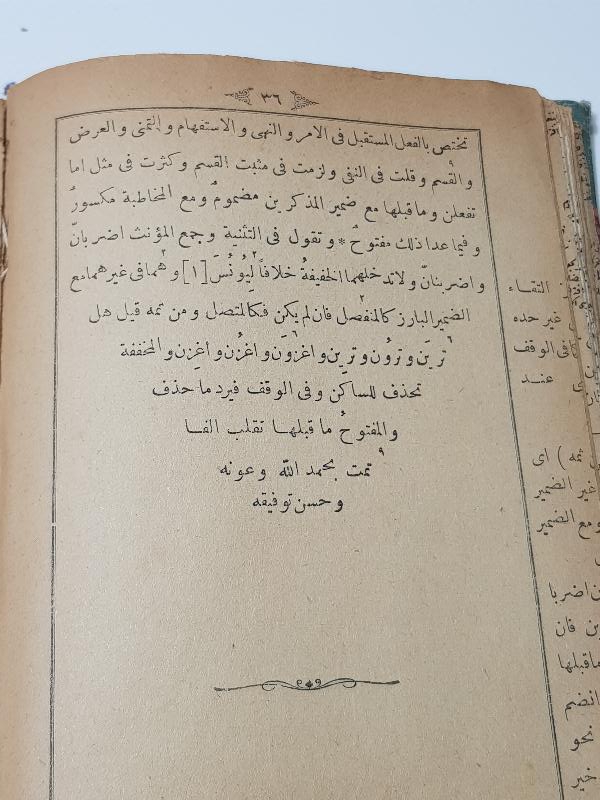 ٣٦
تختص بالفعل المستقبل فى الامر والنهى والاستفهام والتمنى والعرض
والقسم وقلت فى النفى ولزمت فى مثبت القسم وكثرت فى مثل اما
تفعلن وما قبلها مع ضمير المذكرين مضمومٌ ومع المخاطبة مكسورٌ
وفيما عدا ذلك مفتوحٌ * وتقول فى التثنية وجمع المؤنث اضربانّ
واضربنانّ ولا تدخلهما الخفيفةُ خلافاً لِيُونُسَ [١] وهما فى غيرهما مع
الضمير البارز كالمنفصل فان لم يكن فكالمتصل ومن ثمه قيل هل
ترين وترون وترين واغزون واغزُن واغزِن والمخففة
تحذف للساكن وفى الوقف فيرد ما حذف
والمفتوحُ ما قبلها تقلب الفا
تمت بحمد الله وعونه
وحسن توفيقه
التقاء
غير حده
فى الوقف
عند
ثمه ) اى
غير الضمير
ومع الضمير
اضربا
ين فان
ماقبلها
انضم
نحو
خير